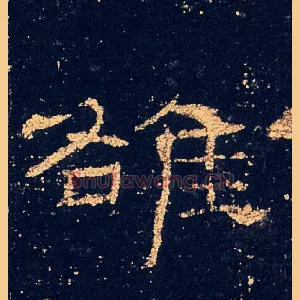 雒
shufawang.cn